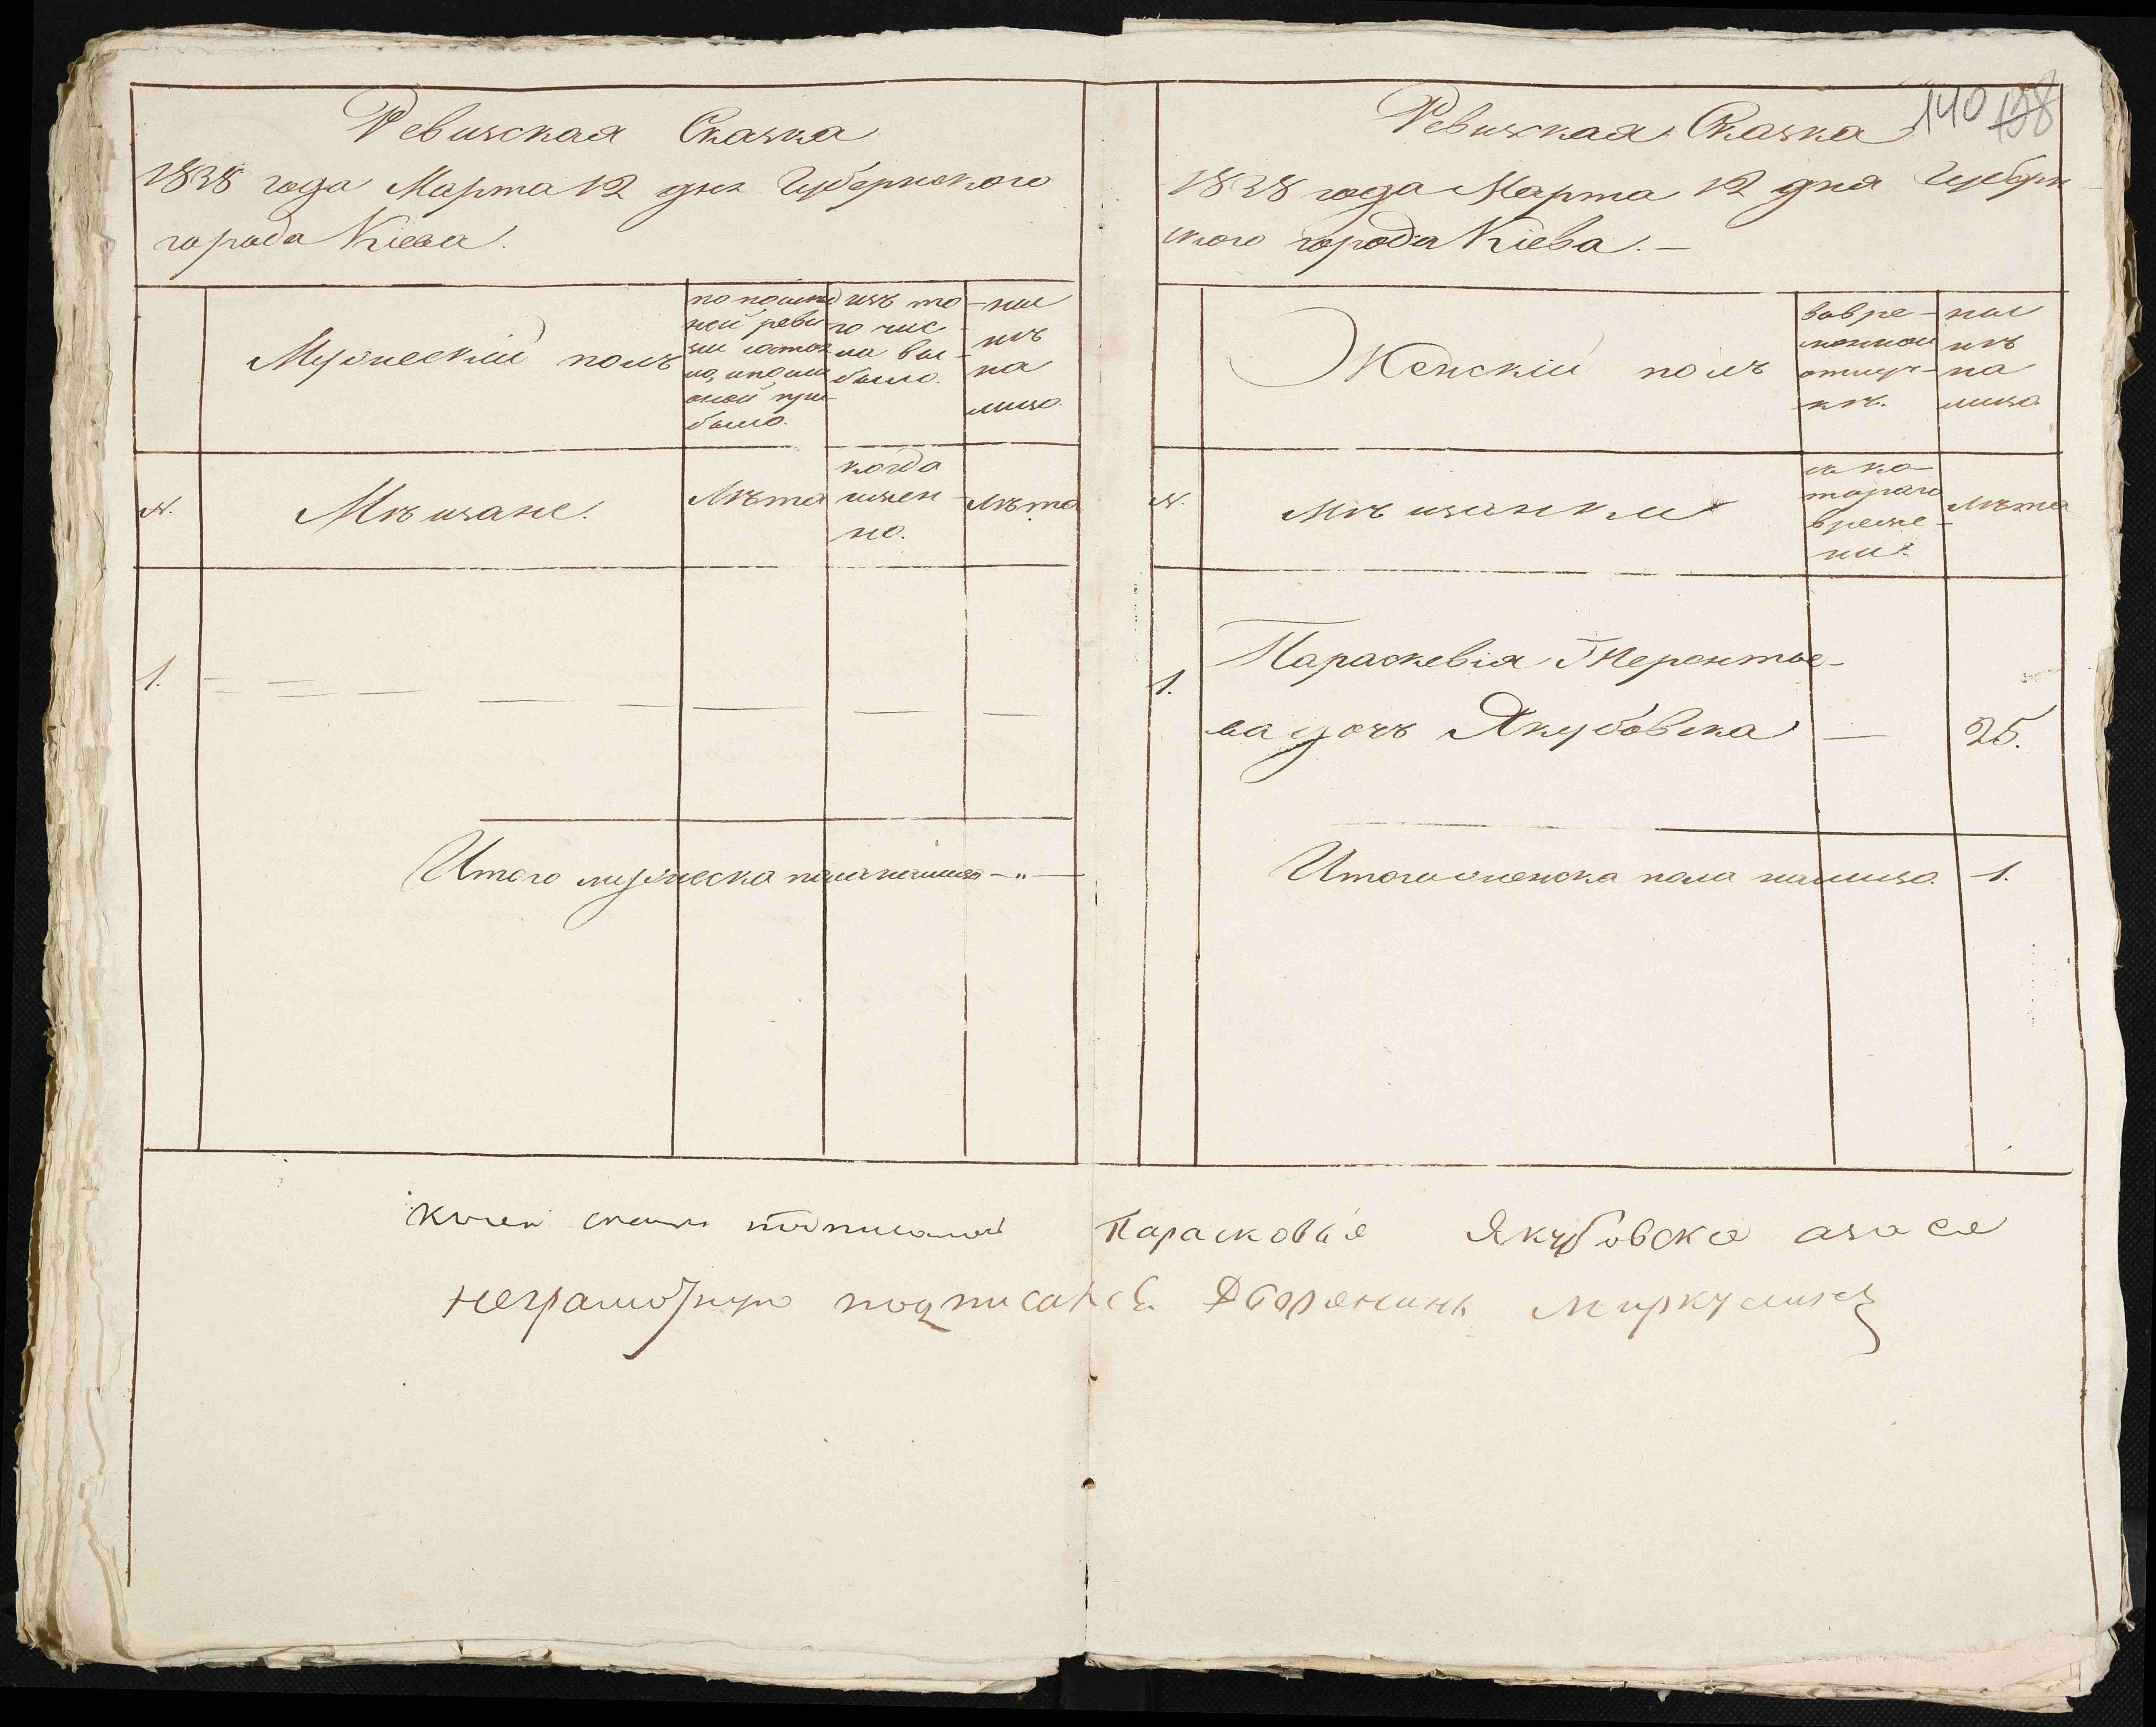 Ревизская Сказка
1838 года Марта 12 дня Губернского
города Кіева.
Мужескій полъ
по послед
ней реви
зіи состоя
ло, и после
оной при
было.
изъ то
го чис
ла вы
было.
ны
нѣ
на
лицо
№.
Мѣщане.
Лѣта
когда
имен
но.
Лѣта
1.
Итого мужеска пола налицо — „ —
140 138
Ревизская Сказка
1838 года Марта 12 дня Губерн
ского города Кіева. —
Женскій полъ
вовре-
менной
отлуч-
кѣ.
ны
нѣ
на
лицо
№.
мѣщанки
съ ко-
тораго
време-
ни.
Лѣта
1.
Параскевія Терентье-
ва дочь Якубовска — 25.
Итого женска пола налицо. 1.
Парасковья Якубовска азаее
неграмотную подписалсь Дворянинь